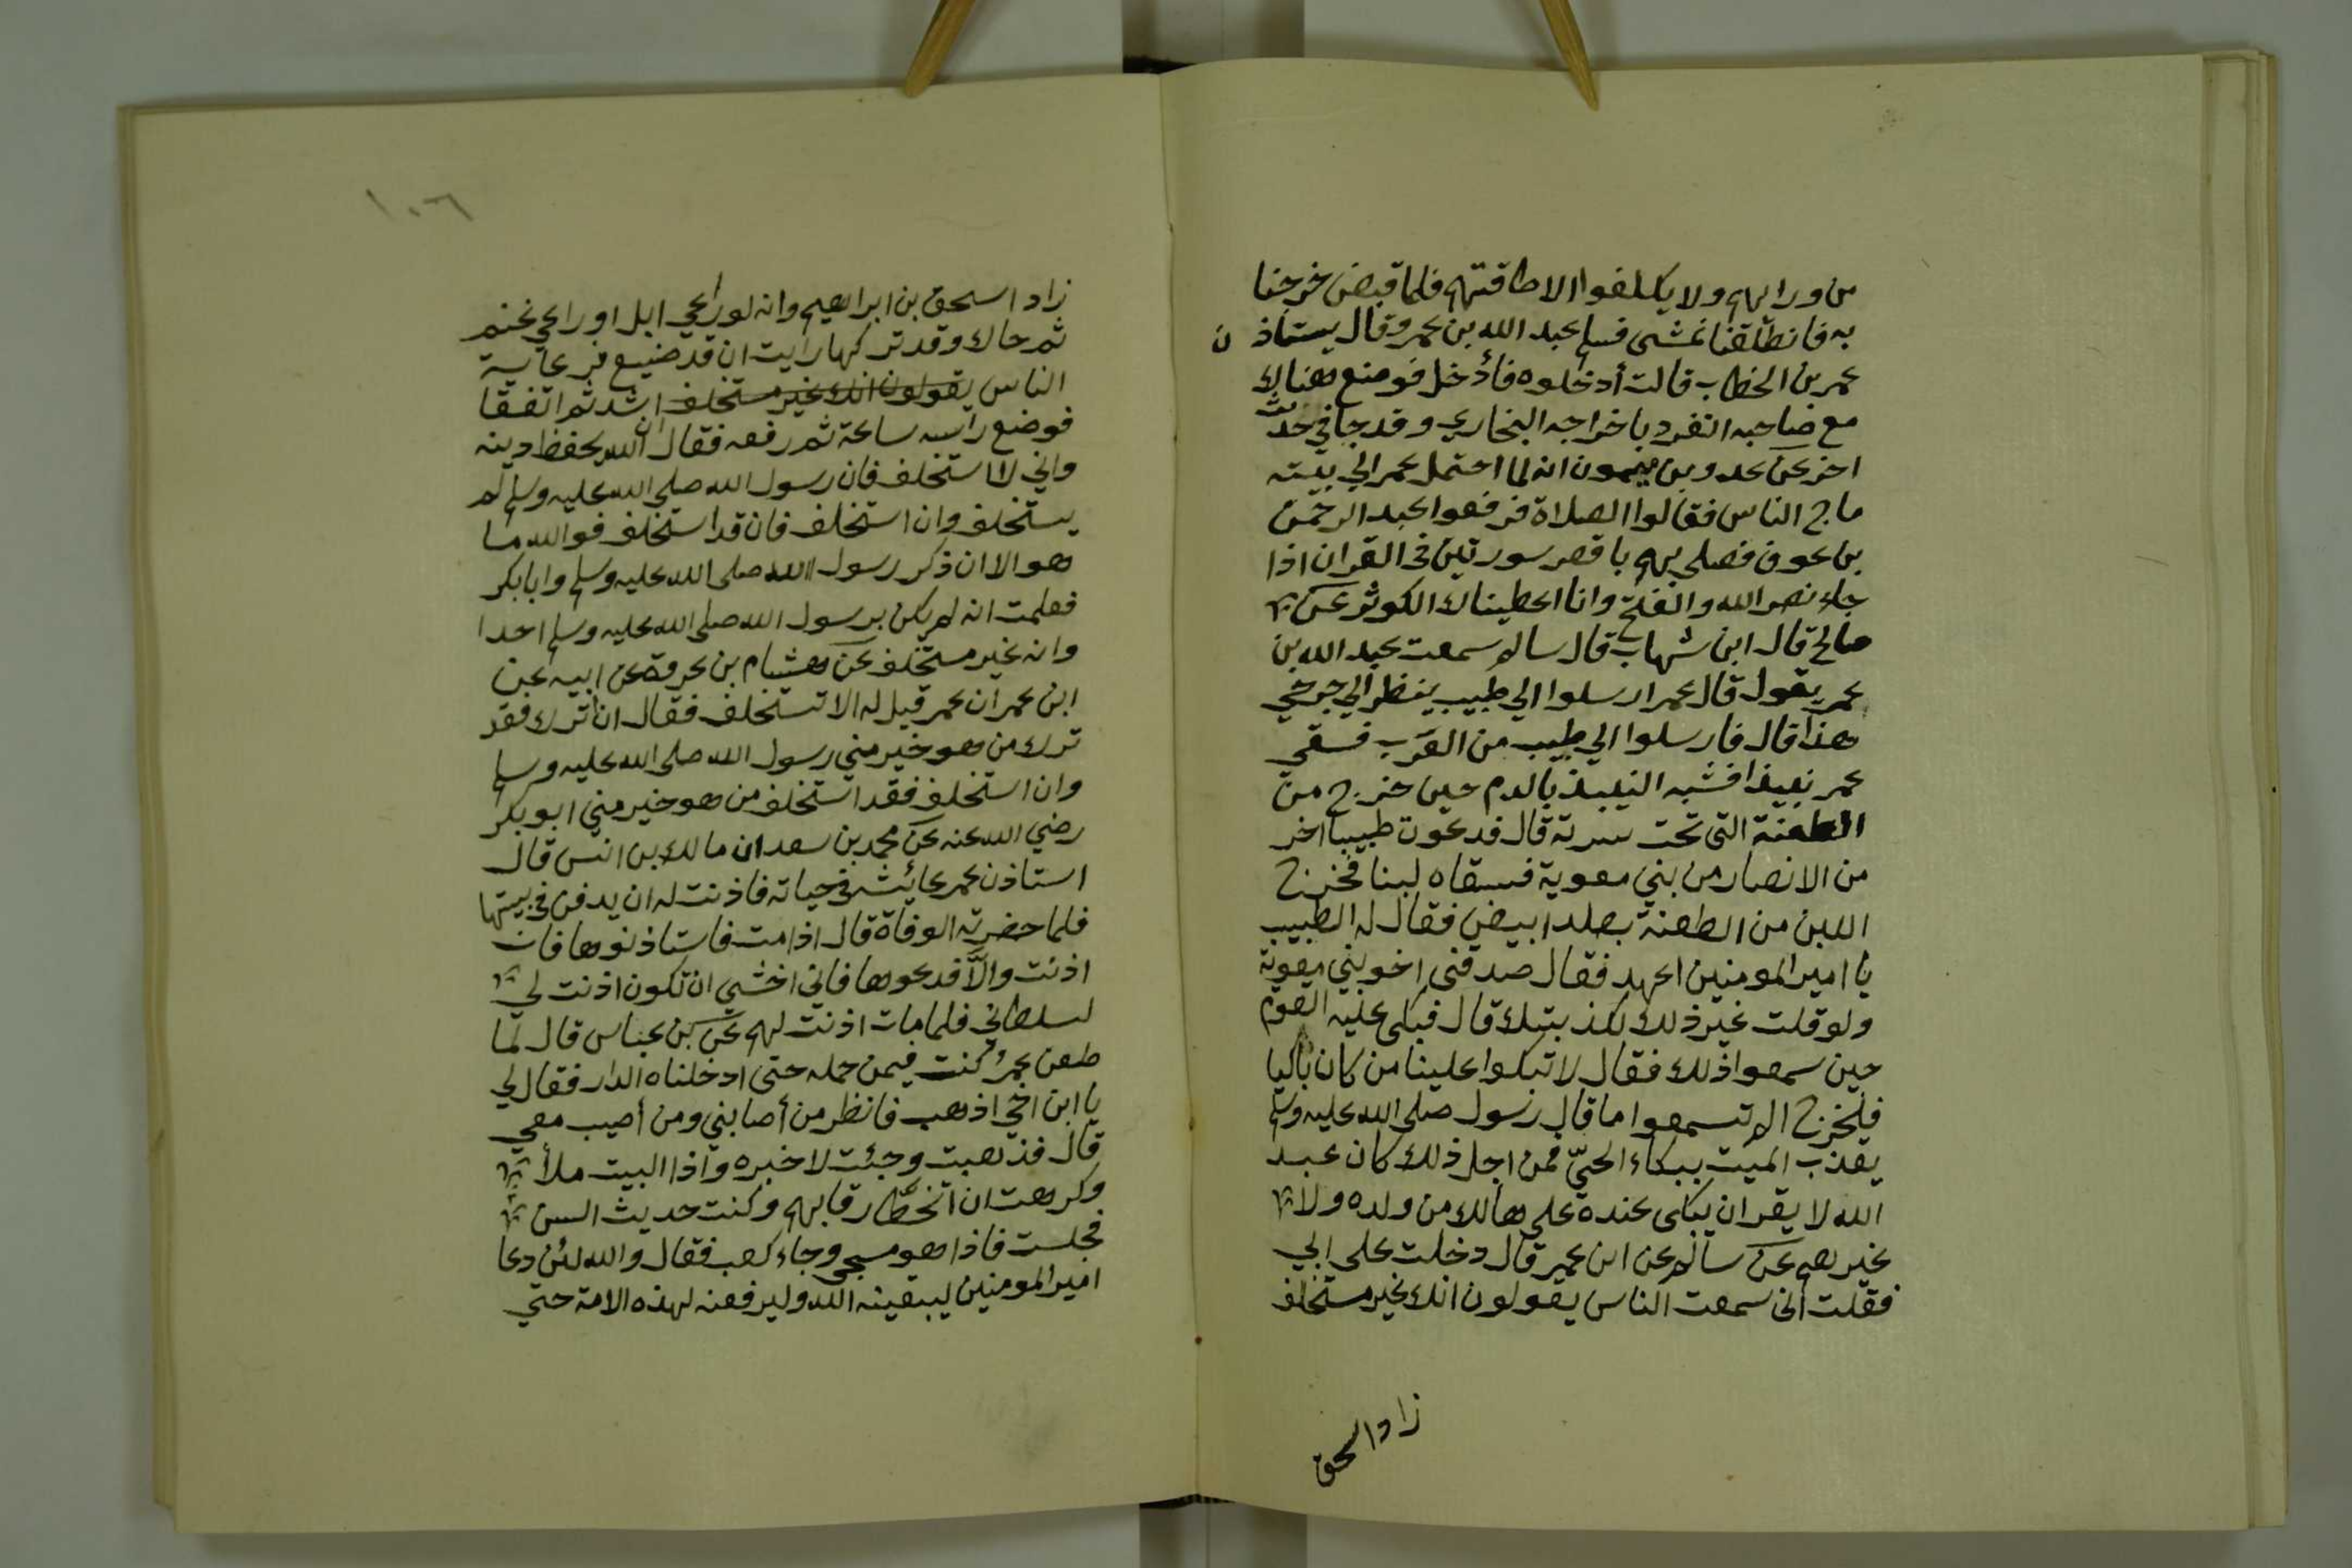 من ورائهم ولا يكلفوا الا طاقتهم فلما قبض خرجنا
به فانطلقنا نمشى فسلم عبد الله بن عمر وقال يستاذن
عمر بن الخطاب قالت أدخلوه فأدخل فوضع هنالك
مع صاحبه انفرد باخراجه البخاري وقد جا في حديث
اخر عن عمرو بن ميمون انه لما احتمل عمر الي بيته
ماج الناس فقالوا الصلاة فرفعوا عبد الرحمن
بن عوف فصلى بهم باقصر سورتين في القران اذا
جاء نصر الله والفتح وانا اعطيناك الكوثر عن
صالح قال ابن شهاب قال سالم سمعت عبد الله بن
عمر يقول قال عمر ارسلوا الي طبيب ينظر الي جرحي
هذا قال فارسلوا الي طبيب من العرب فسقي
عمر نبيذا فشبه النبيذ بالدم حين خرج من
الطعنة التى تحت سرته قال فدعوت طبيبا اخر
من الانصار من بني معوية فسقاه لبنا فخرج
اللبن من الطعنة يصلد ابيض فقال له الطبيب
يا امير المومنين اعهد فقال صدقنى اخو بني معوية
ولو قلت غير ذلك لكذبتك قال فبكى عليه القوم
حين سمعوا ذلك فقال لا تبكوا علينا من كان باكيا
فليخرج الم تسمعوا ما قال رسول صلى الله عليه وسلم
يعذب الميت ببكاء الحيّ فمن اجل ذلك كان عبد
الله لا يقر ان يبكى عنده على هالك من ولده ولا
غيرهم عن سالم عن ابن عمر قال دخلت على ابي
فقلت انى سمعت الناس يقولون انك غير مستخلف
زاد اسحق
١٠٦
زاد اسحق بن ابراهيم وانه لو راعي ابل او راعي غنم
ثم جاك وقد تركها رايت ان قد ضيع فرعاية
الناس يقولون انك غير مستخلف اشد ثم اتفقا
فوضع راسه ساعة ثم رفعه فقال ان الله يحفظ دينه
واني لا استخلف فان رسول الله صلى الله عليه وسلم لم
يستخلف وان استخلف فان قد استخلف فوالله ما
هو الا ان ذكر رسول الله صلى الله عليه وسلم وابا بكر
فعلمت انه لم يكن برسول الله صلى الله عليه وسلم احدا
وانه غير مستخلف عن هشام بن عروة عن ابيه عن
ابن عمر ان عمر قيل له الا تستخلف فقال ان اترك فقد
ترك من هو خير مني رسول الله صلى الله عليه وسلم
وان استخلف فقد استخلف من هو خير مني ابو بكر
رضي الله عنه عن محمد بن سعد ان مالك بن انس قال
استاذن عمر عائشه في حياته فاذنت له ان يدفن في بيتها
فلما حضرته الوفاة قال اذا مت فاستاذنوها فان
اذنت والّا فدعوها فاني اخشي ان تكون اذنت لي
لسلطاني فلما مات اذنت لهم عن بن عباس قال لما
طعن عمرُ كنت فيمن حمله حتى ادخلناه الدار فقال لي
يا ابن اخي اذهب فانظر من أصابني ومن أصيب معي
قال فذهبت وجئت لاخبره واذا البيت ملأ
وكرهت ان اتخطَّا رقابهم وكنت حديث السن
فجلست فاذا هو مسجى وجاء كعب فقال والله لئن دعا
امير المومنين ليبقينه الله وليرفعنه لهذه الامة حتي